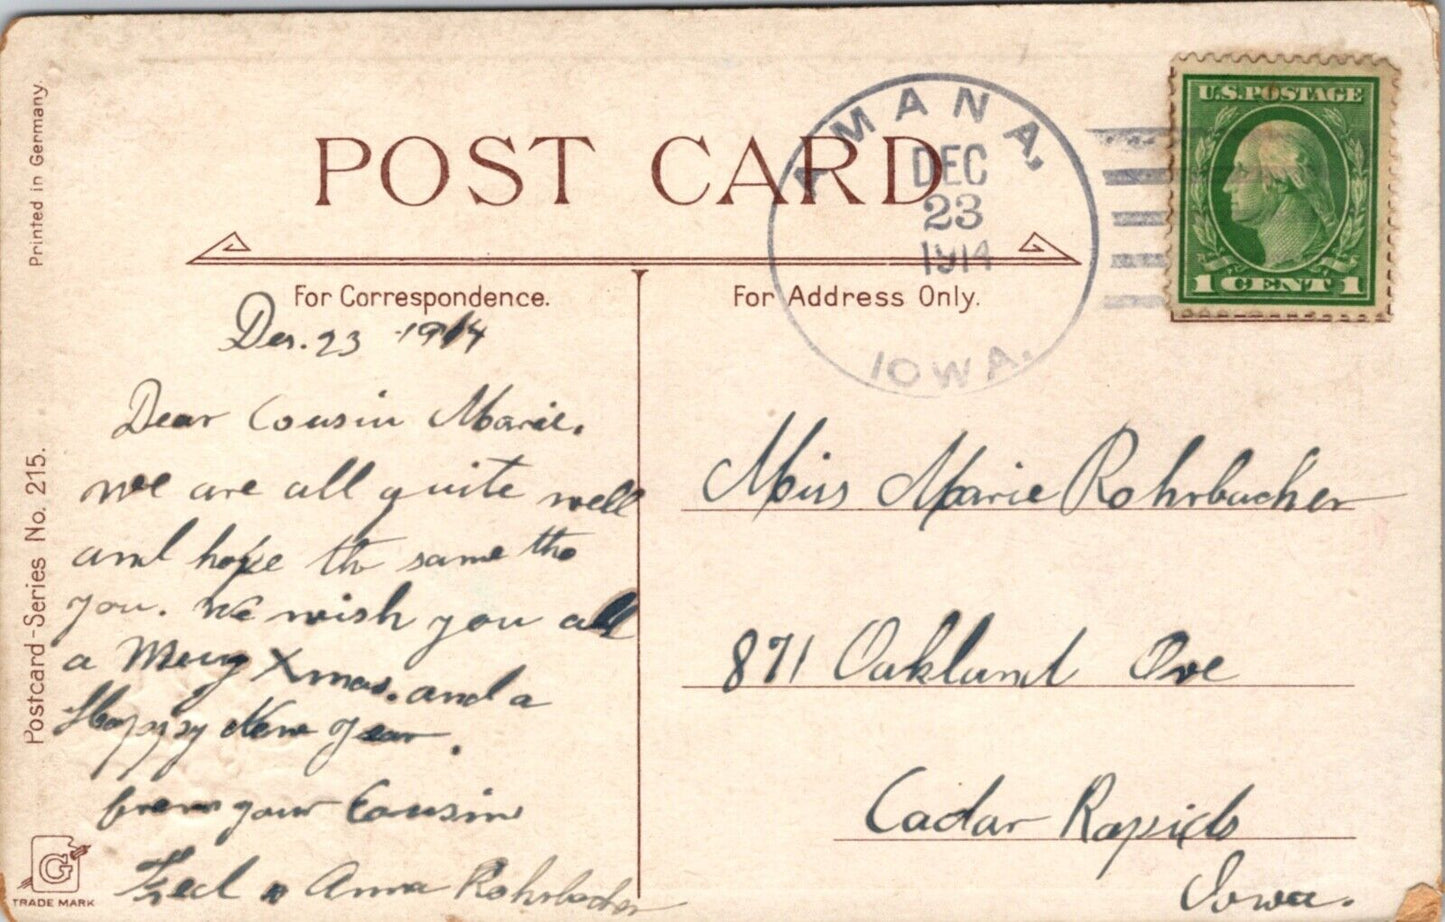 POST CARD
AMANA,
DEC
23
1914
IOWA.
U.S. POSTAGE
1 CENT 1
Printed in Germany.
Postcard-Series No. 215.
For Correspondence.
For Address Only.
Dec. 23 1914
Dear Cousin Marie.
we are all quite well
and hope the same tho
you. We wish you all
a Merry Xmas. and a
Happy New Year.
from your Cousin
Fred & Anna Rohrbacher
G
TRADE MARK
Miss Marie Rohrbacher
871 Oakland Ave
Cadar Rapids
Iowa.